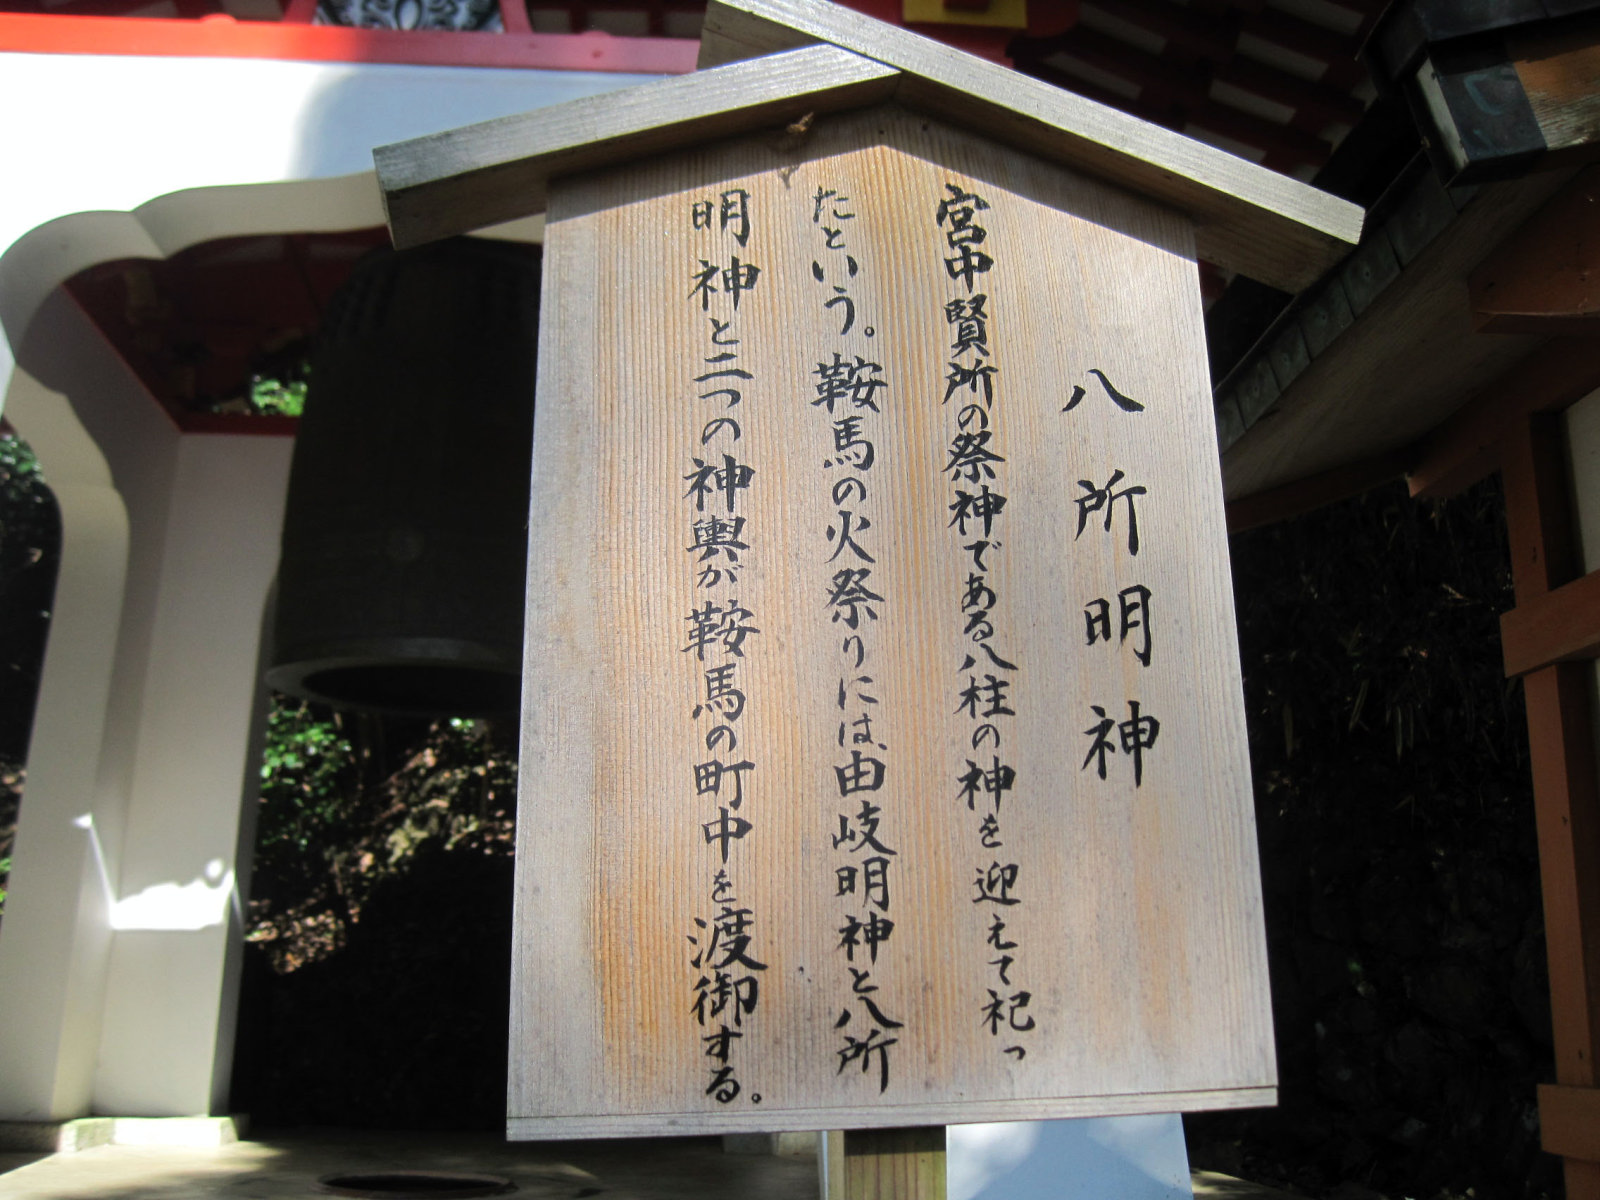 八所明神
宮中賢所の祭神である八柱の神を迎えて祀っ
たという。鞍馬の火祭りには、由岐明神と八所
明神と二つの神輿が鞍馬の町中を渡御する。